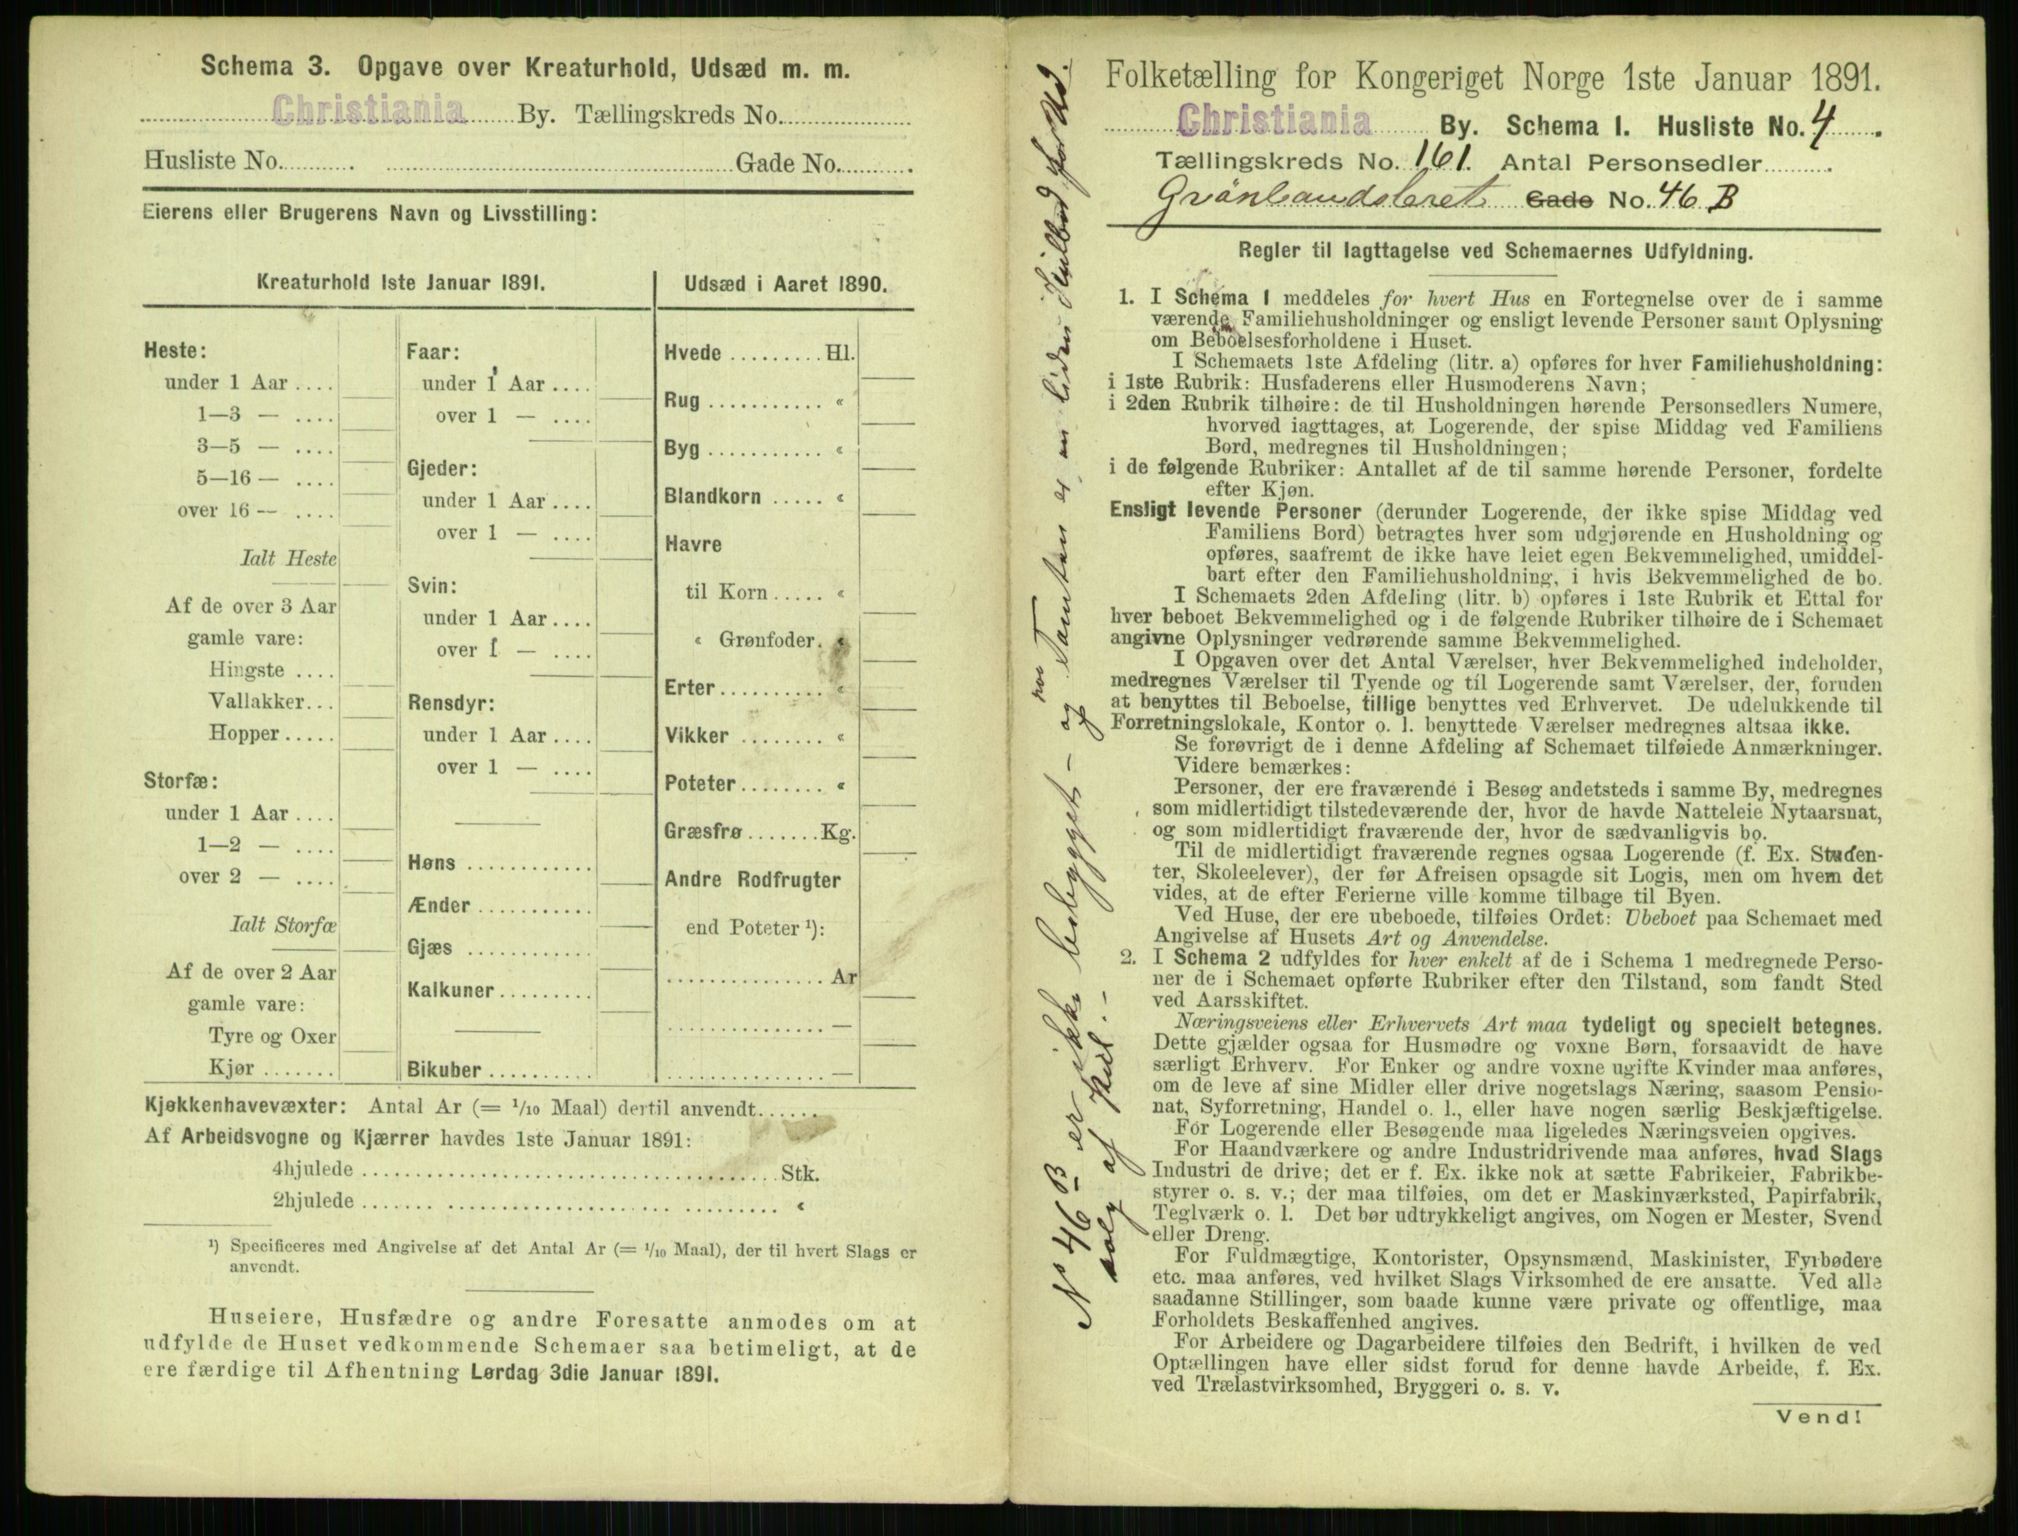 Schema 3. Opgave over Kreaturhold, Udsæd m. m.
Christiania By. Tællingskreds No.
Husliste No. Gade No.
Eierens eller Brugerens Navn og Livsstilling:
Kreaturhold 1ste Januar 1891.
Heste:
under 1 Aar ....
1—3 — ....
3—5 — ....
5—16 — ....
over 16 — ....
Ialt Heste
Af de over 3 Aar
gamle vare:
Hingste ....
Vallakker...
Hopper.....
Storfæ:
under 1 Aar ....
1—2 — ....
over 2 — ....
Ialt Storfæ
Af de over 2 Aar
gamle vare:
Tyre og Oxer
Kjør .......
Faar:
under 1 Aar ....
over 1 — ....
Gjeder:
under 1 Aar ....
over 1 — ....
Svin:
under 1 Aar ....
over 1 — ....
Rensdyr:
under 1 Aar ....
over 1 — ....
Høns ...........
Ænder ..........
Gjæs ...........
Kalkuner.........
Bikuber .........
Udsæd i Aaret 1890.
Hvede ......... Hl.
Rug ........... «
Byg ........... «
Blandkorn ..... «
Havre
til Korn ..... «
« Grønfoder. «
Erter.......... «
Vikker ........ «
Poteter ........ «
Græsfrø ....... Kg.
Andre Rodfrugter
end Poteter ¹):
............... Ar
............... —
............... —
Kjøkkenhavevæxter: Antal Ar (= 1/10 Maal) dertil anvendt......
Af Arbeidsvogne og Kjærrer havdes 1ste Januar 1891:
4hjulede ........................................ Stk.
2hjulede ........................................ «
¹) Specificeres med Angivelse af det Antal Ar (= 1/10 Maal), der til hvert Slags er
anvendt.
Huseiere, Husfædre og andre Foresatte anmodes om at
udfylde de Huset vedkommende Schemaer saa betimeligt, at de
ere færdige til Afhentning Lørdag 3die Januar 1891.
No 46 B er ikke bebygget – og paa Tomten er en liden Hulbod for Ud-
salg af Kul.–
Folketælling for Kongeriget Norge 1ste Januar 1891.
Christiania By. Schema 1. Husliste No. 4
Tællingskreds No. 161. Antal Personsedler
Grønlandsleret Gade No. 46 B
Regler til Iagttagelse ved Schemaernes Udfyldning.
1. I Schema 1 meddeles for hvert Hus en Fortegnelse over de i samme
værende Familiehusholdninger og ensligt levende Personer samt Oplysning
om Beboelsesforholdene i Huset.
I Schemaets 1ste Afdeling (litr. a) opføres for hver Familiehusholdning:
i 1ste Rubrik: Husfaderens eller Husmoderens Navn;
i 2den Rubrik tilhøire: de til Husholdningen hørende Personsedlers Numere,
hvorved iagttages, at Logerende, der spise Middag ved Familiens
Bord, medregnes til Husholdningen;
i de følgende Rubriker: Antallet af de til samme hørende Personer, fordelte
efter Kjøn.
Ensligt levende Personer (derunder Logerende, der ikke spise Middag ved
Familiens Bord) betragtes hver som udgjørende en Husholdning og
opføres, saafremt de ikke have leiet egen Bekvemmelighed, umiddel-
bart efter den Familiehusholdning, i hvis Bekvemmelighed de bo.
I Schemaets 2den Afdeling (litr. b) opføres i 1ste Rubrik et Ettal for
hver beboet Bekvemmelighed og i de følgende Rubriker tilhøire de i Schemaet
angivne Oplysninger vedrørende samme Bekvemmelighed.
I Opgaven over det Antal Værelser, hver Bekvemmelighed indeholder,
medregnes Værelser til Tyende og til Logerende samt Værelser, der, foruden
at benyttes til Beboelse, tillige benyttes ved Erhvervet. De udelukkende til
Forretningslokale, Kontor o. l. benyttede Værelser medregnes altsaa ikke.
Se forøvrigt de i denne Afdeling af Schemaet tilføiede Anmærkninger.
Videre bemærkes:
Personer, der ere fraværende i Besøg andetsteds i samme By, medregnes
som midlertidigt tilstedeværende der, hvor de havde Natteleie Nytaarsnat,
og som midlertidigt fraværende der, hvor de sædvanligvis bo.
Til de midlertidigt fraværende regnes ogsaa Logerende (f. Ex. Studen-
ter, Skoleelever), der før Afreisen opsagde sit Logis, men om hvem det
vides, at de efter Ferierne ville komme tilbage til Byen.
Ved Huse, der ere ubeboede, tilføies Ordet: Ubeboet paa Schemaet med
Angivelse af Husets Art og Anvendelse.
2. I Schema 2 udfyldes for hver enkelt af de i Schema 1 medregnede Perso-
ner de i Schemaet opførte Rubriker efter den Tilstand, som fandt Sted
ved Aarsskiftet.
Næringsveiens eller Erhvervets Art maa tydeligt og specielt betegnes.
Dette gjælder ogsaa for Husmødre og voxne Børn, forsaavidt de have
særligt Erhverv. For Enker og andre voxne ugifte Kvinder maa anføres,
om de leve af sine Midler eller drive nogetslags Næring, saasom Pensio-
nat, Syforretning, Handel o. l., eller have nogen særlig Beskjæftigelse.
For Logerende eller Besøgende maa ligeledes Næringsveien opgives.
For Haandværkere og andre Industridrivende maa anføres, hvad Slags
Industri de drive; det er f. Ex. ikke nok at sætte Fabrikeier, Fabrikbe-
styrer o. s. v.; der maa tilføies, om det er Maskinværksted, Papirfabrik,
Teglværk o. l. Det bør udtrykkeligt angives, om Nogen er Mester, Svend
eller Dreng.
For Fuldmægtige, Kontorister, Opsynsmænd, Maskinister, Fyrbødere
etc. maa anføres, ved hvilket Slags Virksomhed de ere ansatte. Ved alle
saadanne Stillinger, som baade kunne være private og offentlige, maa
Forholdets Beskaffenhed angives.
For Arbeidere og Dagarbeidere tilføies den Bedrift, i hvilken de ved
Optællingen have eller sidst forud for denne havde Arbeide, f. Ex.
ved Trælastvirksomhed, Bryggeri o. s. v.
Vend!